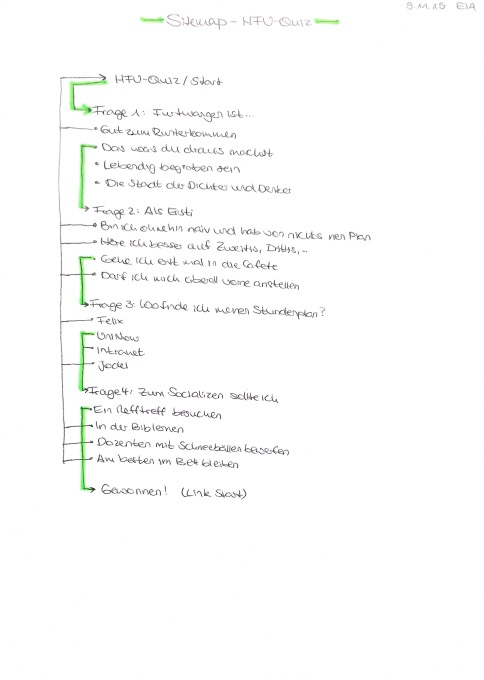 9.11.19 EIA
Sitemap - HFU-Quiz
HFU-Quiz / Start
Frage 1: Furtwangen ist...
• Gut zum Runterkommen
• Das was du draus machst
• Lebendig begraben sein
• Die Stadt der Dichter und Denker
Frage 2: Als Ersti
• Bin ich ohnehin naiv und hab von nichts nen Plan
• Höre ich besser auf Zweitis, Drittis,...
• Gehe ich erst mal in die Cafete
• Darf ich mich überall vorne anstellen
Frage 3: Wo finde ich meinen Stundenplan?
Felix
UniNow
Intranet
Jodel
Frage 4: Zum Socializen sollte ich
Ein Refftreff besuchen
In der Bib lernen
Dozenten mit Schneebällen bewerfen
Am besten im Bett bleiben
Gewonnen! (Link Start)